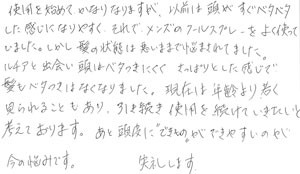 使用を始めてかなりなりますが、以前は頭がすぐベタベタ
した感じになりやすく、それで、メンズのクールスプレーをよく使って
いました。しかし髪の状態は悪いままで悩まされてました。
ルチアと出会い頭はベタつきにくく さっぱりとした感じで
髪もベタつきはなくなりました。現在は年齢より若く
見られることもあり、引き続き使用を続けていきたいと
考えております。あと頭皮に"できもの"ができやすいのが
今の悩みです。 失礼します。